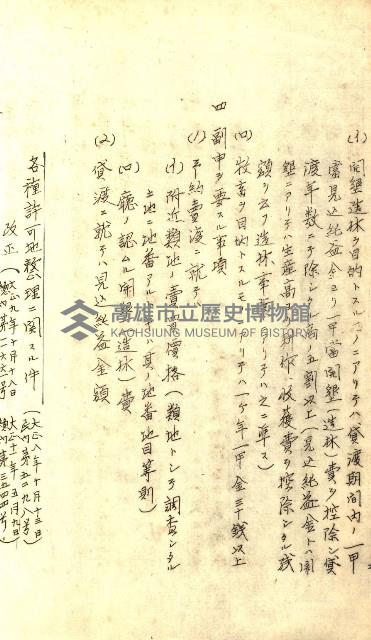 (イ) 開墾造林ヲ目的トスルモノニアリテハ貸渡期間内ノ一甲
當見込純益金ヨリ一甲當開墾(造林)費ヲ控除シ貸
渡年数ニテ除シタル高五割以上(見込純益金トハ開
墾ニアリテハ生産高ヨリ耕作、收穫費ヲ控除シタル残
額ヲ云フ造林事業ニアリテハ之ニ準ス)
(ロ) 牧畜ヲ目的トスルモノニアリテハ一ケ年一甲金三十錢以上
四 副申ヲ要スル事項
(1) 予約賣渡ニ就テハ
(イ) 附近類地ノ賣買價格(類地トシテ調査シタル
土地ニ地番アルトキハ其ノ地番地目等則)
(ロ) 廳ノ認ムル開墾(造林)費
(2) 貸渡ニ就テハ見込純益金額
各種許可地整理ニ関スル件
(大正八年十月十三日
改正
高雄市立歷史博物館
KAOHSIUNG MUSEUM OF HISTORY